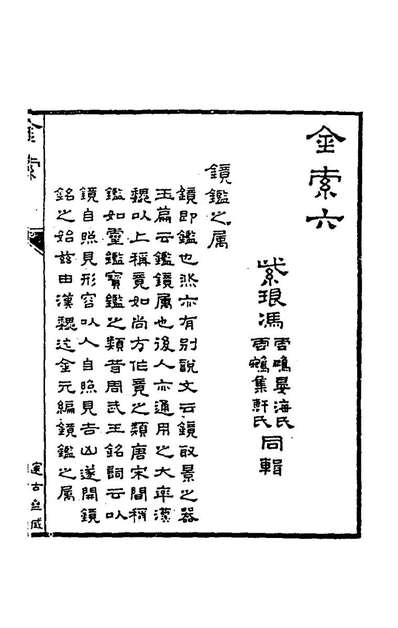 金索六
紫琅馮雲鵬晏海氏雲鵷集軒氏同輯
鏡鑑之属
鏡即鑑也然亦有别說文云鏡取景之器
玉篇云鑑鏡属也後人亦通用之大率漢
魏以上稱竟如尚方作竟之類唐宋間稱
鑑如靈鑑寶鑑之類昔周武王銘詞云以
鏡自照見形容以人自照見吉凶遂開鏡
銘之始茲由漢魏迄金元編鏡鑑之属
金索